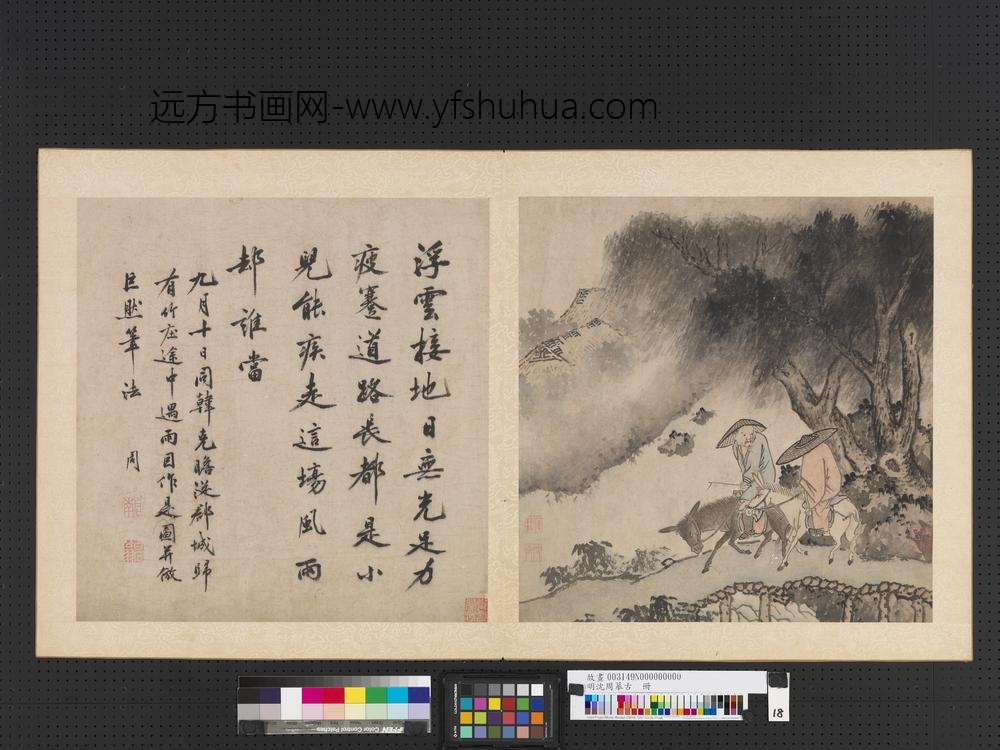 远方书画网-www.yfshuhua.com
浮雲接地日無光足力
疲蹇道路長都是小
兒能疾走這場風雨
却誰當
九月十日同韓克瞻從郡城歸
有竹庄途中遇雨因作是圖并倣
巨然筆法 周
故畫 003149N000000000
明沈周摹古 冊
18
Color Control Patches